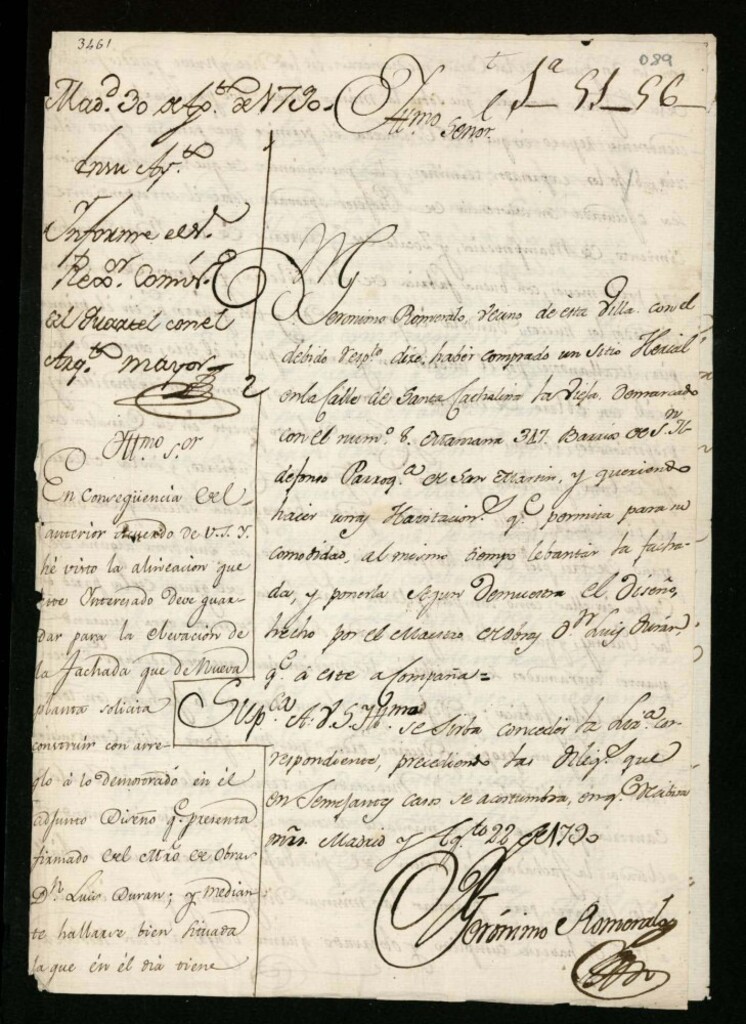 3461
089
1ª 51 56
Madᵈ 30 de Agᵗᵒ de 1790.
En su Ayᵗᵒ
Informe el Sʳ
Rexᵒʳ Comisᵒ
del Quartel con el
Arqᵗᵒ mayor
Illmo Sᵒʳ
En Conseqüencia del
anterior acuerdo de V.S.Y.
hé visto la alineacion que
este Interesado deve guar-
dar para la elevación de
la Fachada que de Nueva
planta solicita
construir con arre-
glo á lo demostrado en él
adjunto Diseño qᵉ presenta
firmado del Mrô de Obras
Dⁿ Luis Duran; y median-
te hallarse bien situada
la que én él dia tiene
Illmo Señor
Jeronimo Romeralo, vecino de esta Villa con el
debido respᵗᵒ dize haber comprado un sitio Herial
en la Calle de Santa Cathalina la vieja, Demarcado
con el numᵒ 8. Manzana 317. Barrio de Sⁿ Il-
defonso Parroqᵃ de San Martin, y queriendo
hacer unas Havitacionˢ qᵉ permita para su
comodidad, al mismo tiempo lebantar la facha-
da, y ponerla segun Demuestra el Diseño,
hecho por el Maestro de obras Dⁿ Luis Durán,
qᵉ á este acompaña=
Suppᶜᵃ A. V.S. Illma se sirba conceder la Lizᵃ cor-
respondiente, precediendo las Diligˢ que
en Semejantes casos se acostumbra, en qᵉ Recibira
mrd. Madrid y Agᵗᵒ 22 de 1790
Jerónimo Romeralo